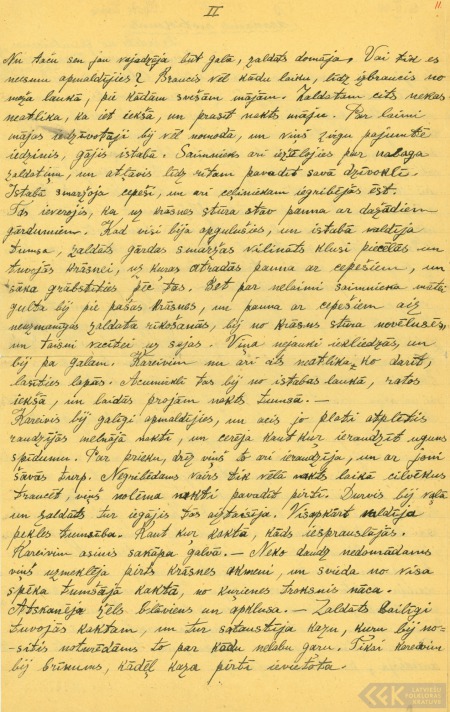 II
11
Nu taču sen jau vajadzēja būt galā, zaldāts domāja. Vai tik es
neesmu apmaldījies? Braucis vēl kādu laiku, līdz izbraucis no
meža laukā, pie kādām svešām mājām. Zaldātam cits nekas
neatlika, kā iet iekšā, un prasīt nakts māju. Par laimi
mājas iedzīvotāji bij vēl nomodā, un viņš zirgu pajumtē
iedzinis, gājis istabā. Saimnieks arī iežēlojies par
zaldātiņu, un atļāvis līdz rītam pavadīt savā dzīvoklī.
Istabā smaržoja cepeši, un arī ceļiniekam iegribējās ēst.
Tas ievērojis, ka uz krāsns stūra stāv panna ar dažādiem
gardumiem. Kad visi bija apgulušies, un istabā valdīja
tumsa, zaldāts gardās smaržas vilināts klusi piecēlās un
tuvojās krāsnei, uz kuras atradās panna ar cepešiem, un
sāka grābstīties pēc tās. Bet par nelaimi saimnieka mātei
gulta bij pie pašas krāsns, un panna ar cepešiem aiz
neuzmanīgas zaldāta rīkošanās, bij no krāsns stūra novēlusēs,
un taisni vecītei uz sejas. Viņa nejauki iekliedzās, un
bij pa galam. Kareivim nu arī cits neatlika, ko darīt,
lasīties lapās. Acumirklī tas bij no istabas laukā, ratos
iekšā, un laidās projām nakts tumsā. —
Kareivis bij galīgi apmaldījies, un acis jo plati atpletis
raudzījās melnajā naktī, un cerēja kaut kur ieraudzīt uguns
spīdumu. Par prieku, drīz viņš to arī ieraudzīja, un ar joni
šāvās turp. Negribēdams vairs tik vēlā nakts laikā cilvēkus
traucēt, viņš nolēma nakti pavadīt pirtī. Durvis bij vaļā
un zaldāts tur iegājis tās aiztaisīja. Visapkārt valdīja
pekles tumsība. Kaut kur kaktā, kāds iespraustājās.
Kareivim asinis sakāpa galvā. — Neko daudz nedomādams
viņš uzmeklēja pirts krāsnes akmeni, un svieda no visa
spēka tumšajā kaktā, no kurienes troksnis nāca.
Atskanēja žēls blāviens un apklusa. — Zaldāts bailīgi
tuvojās kaktam, un tur sataustīja kazu, kuru bij no-
-sitis noturēdams to par kādu nelabu garu. Tikai kareivim
bij brīnums, kādēļ kaza pirtī ievietota.
LATVIEŠU
FOLKLORAS
KRĀTUVE